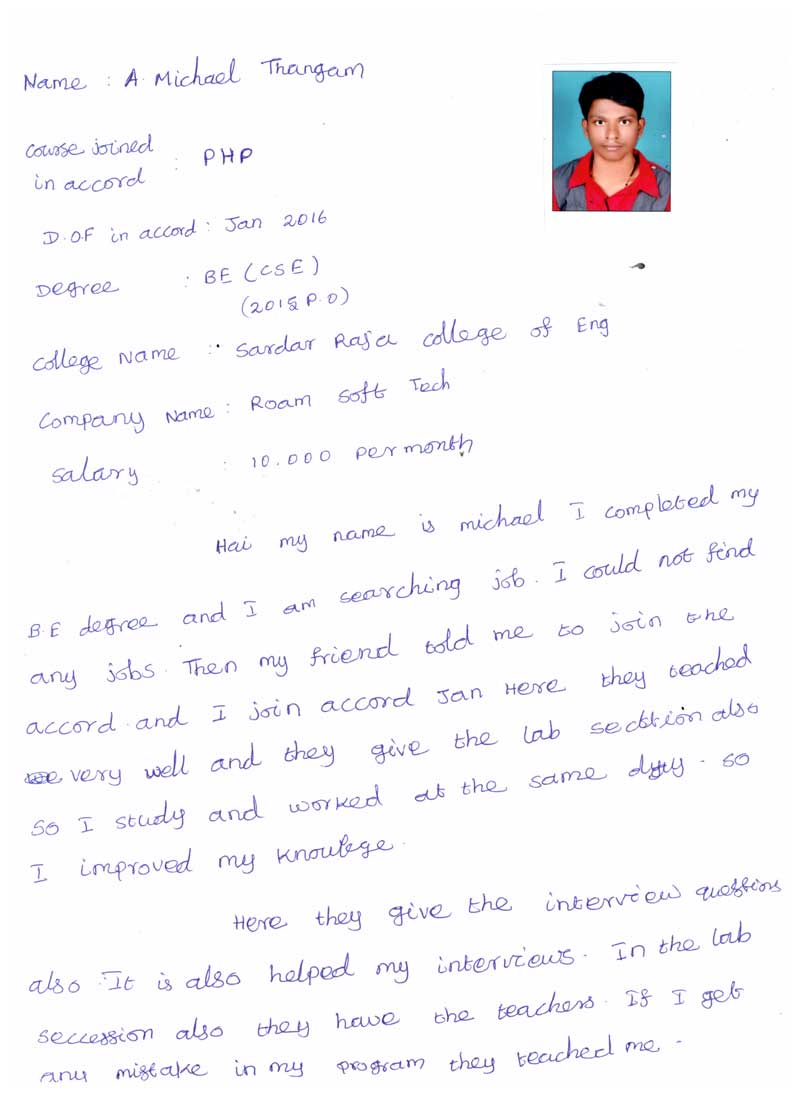 Name : A. Michael Thangam
Course joined
in accord : PHP
D.O.F in accord : Jan 2016
Degree : BE (CSE)
(2015 P.O)
College Name : Sardar Raja college of Eng
Company Name : Roam Soft Tech
Salary : 10.000 per month
Hai my name is michael I completed my
B.E degree and I am searching job. I could not find
any jobs. Then my friend told me to join the
accord and I join accord Jan Here they teached
very well and they give the lab secktion also
So I study and worked at the same day. So
I improved my knowlege.
Here they give the interview questions
also. It is also helped my interviews. In the lab
seccession also they have the teachers. If I get
any mistake in my program they teached me.